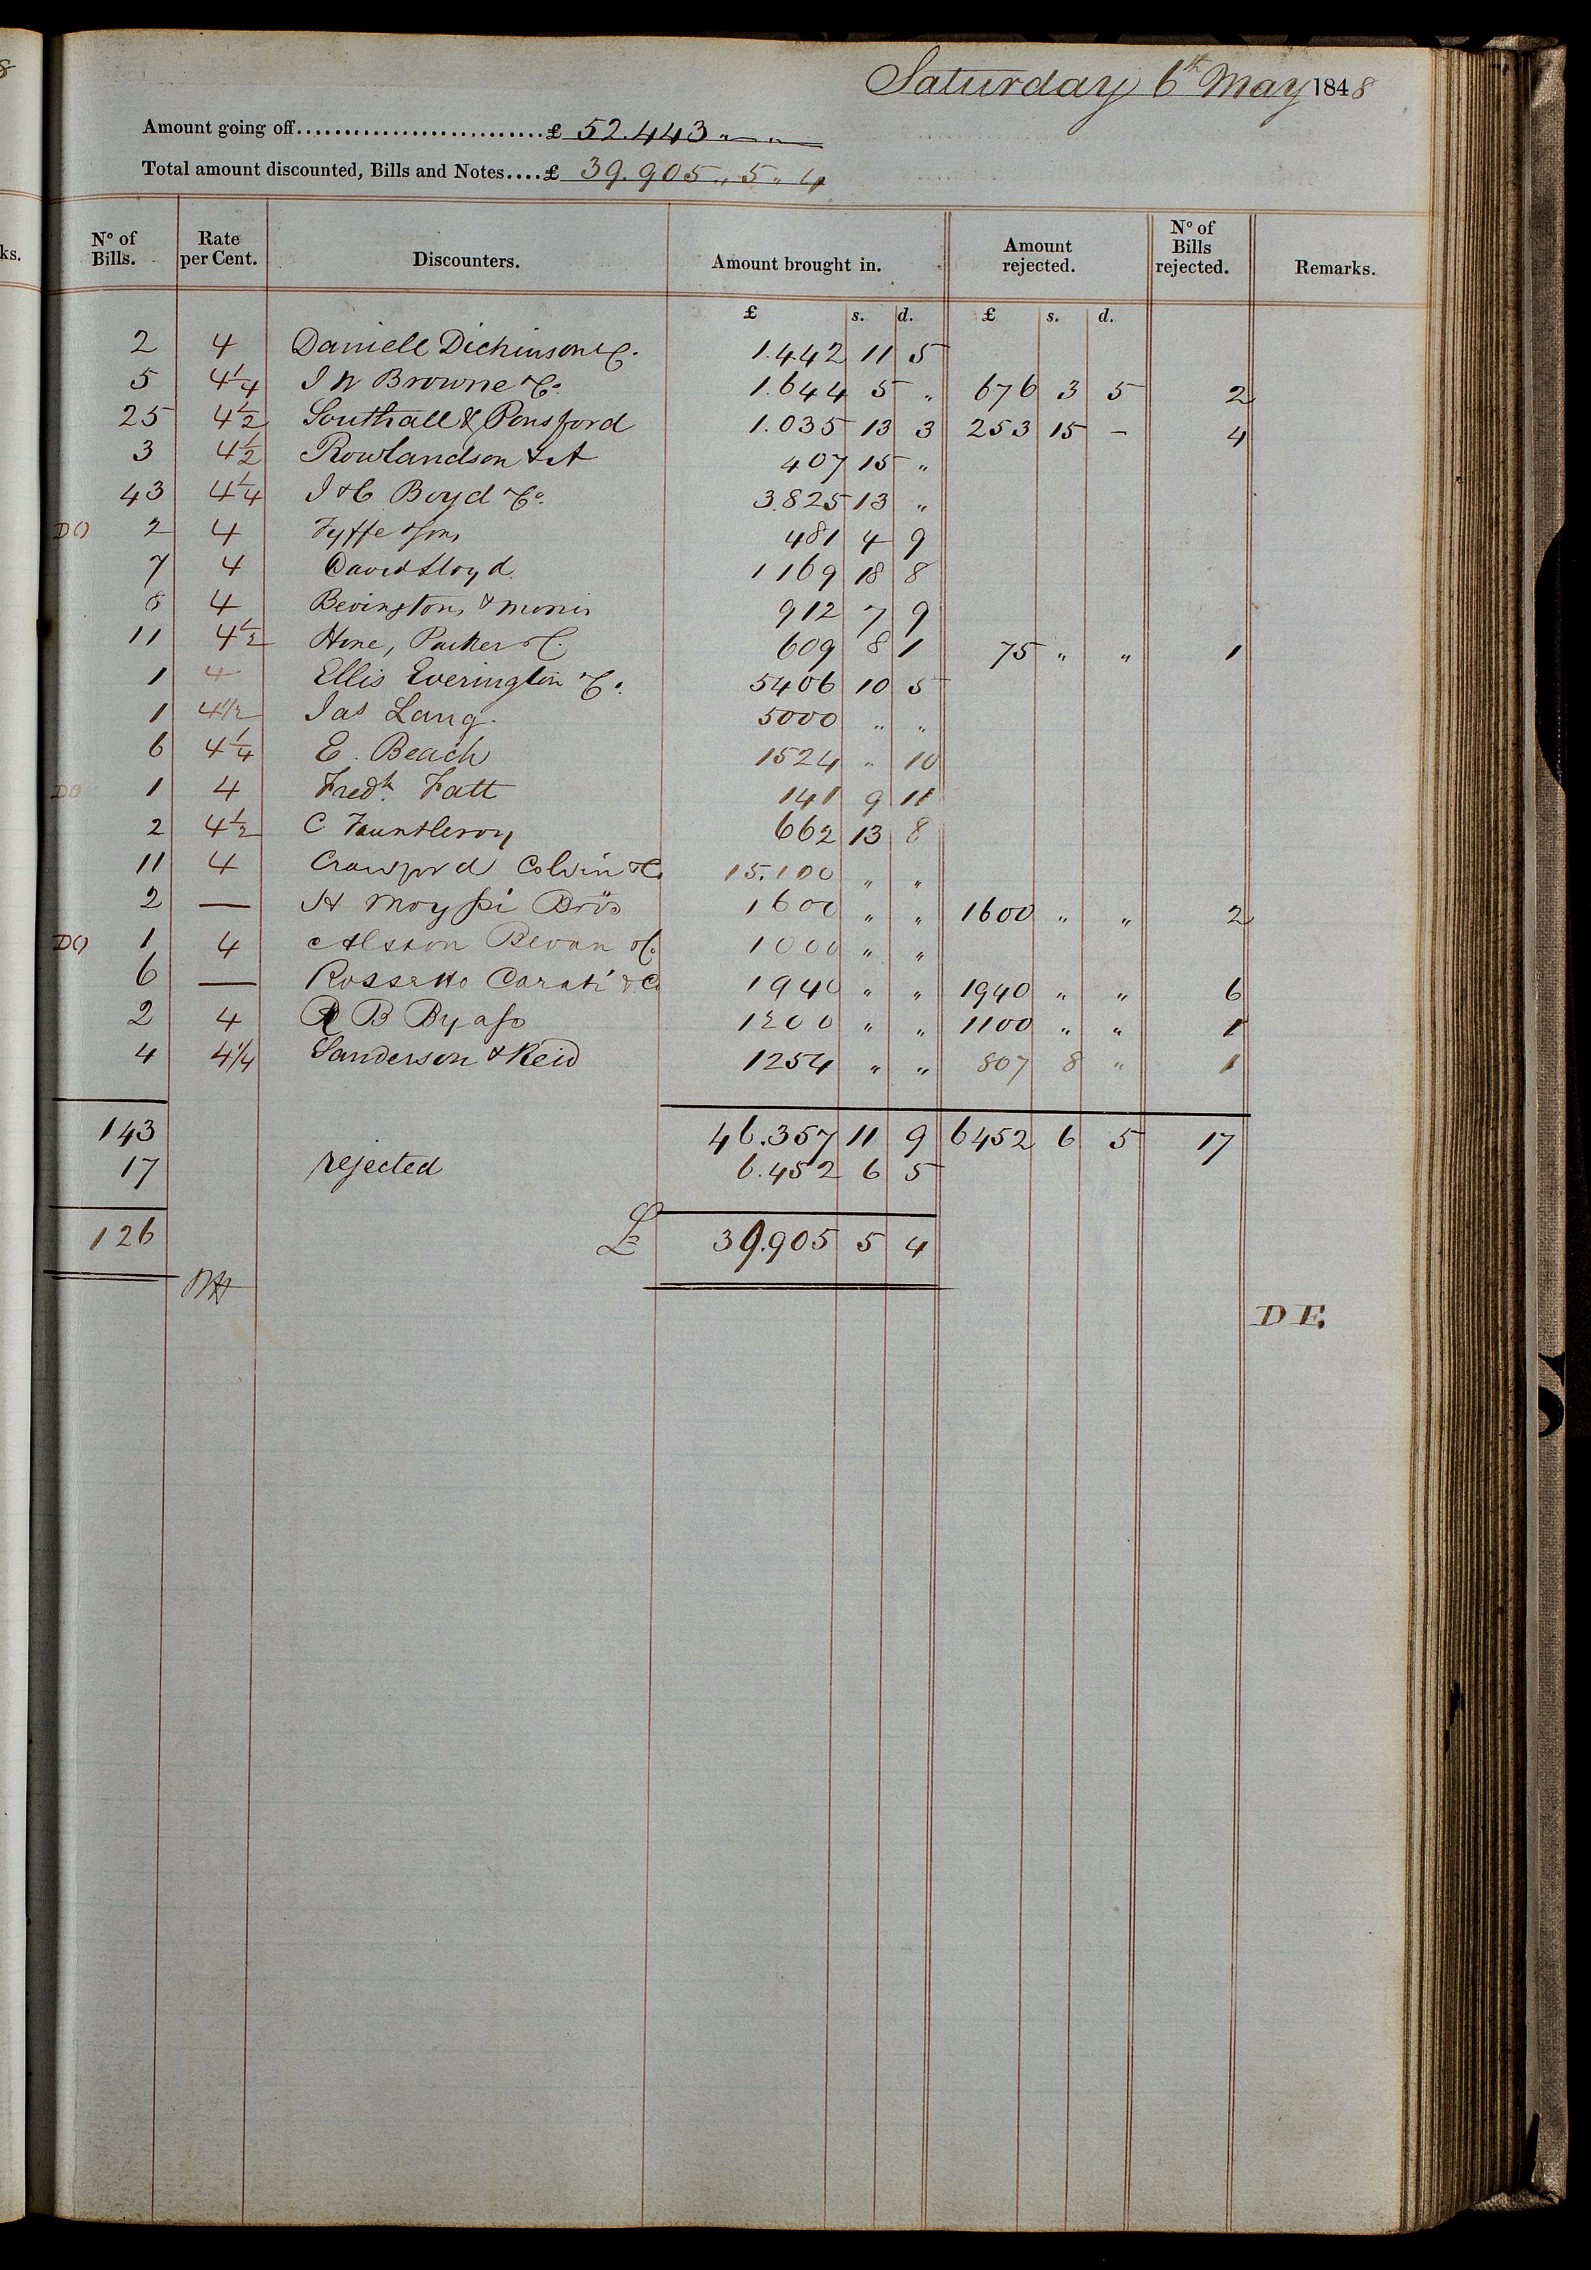 8
ks.
Saturday 6th May 1848
Amount going off...........................£ 52.443 „ — „
Total amount discounted, Bills and Notes....£ 39.905 „ 5 „ 4
No of Bills. Rate per Cent. Discounters. Amount brought in. Amount rejected. No of Bills rejected. Remarks.
£ s. d. £ s. d.
2 4 Daniell Dickinson & C. 1.442 11 5
5 4 1/4 J W Browne & Co. 1.644 5 „ 676 3 5 2
25 4 1/2 Southall & Ponsford 1.035 13 3 253 15 - 4
3 4 1/2 Rowlandson & A 407 15 „
43 4 1/4 J & C Boyd & Co. 3.825 13 „
DO 2 4 Fyffe & Sons 481 4 9
7 4 David Lloyd. 1169 18 8
8 4 Bevingtons & Morris 912 7 9
11 4 1/2 Hine, Parker & C. 609 8 1 75 „ „ 1
1 4 Ellis Everington & Co. 5406 10 5
1 4 1/2 Jas Lang. 5000 „ „
6 4 1/4 E. Beach 1524 „ 10
DO 1 4 Fredk. Fatt 141 9 11
2 4 1/2 C Fauntleroy 662 13 8
11 4 Crawford Colvin & Co 15.100 „ „
2 — H Moyssi Bros 1600 „ „ 1600 „ „ 2
DO 1 4 Bevan & Co. 1000 „ „
6 — Rossetto Carati & Co 1940 „ „ 1940 „ „ 6
2 4 R B Byass 1200 „ „ 1100 „ „ 1
4 4 1/4 Sanderson & Reid 1254 „ „ 807 8 „ 1
143 46.357 11 9 6452 6 5 17
17 rejected 6.452 6 5
126 £ 39.905 5 4
D F.